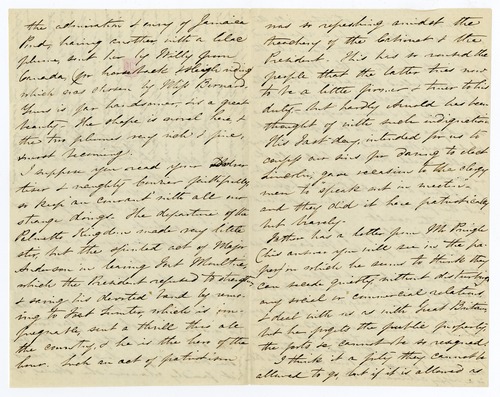 the admiration & envy of Jamaica
Pond, having another with a lilac
plume, sent her by Willy from
Canada, for horseback & sleigh riding
which was chosen by Miss Bernard.
Yours is far handsomer, & is a great
beauty. The shape is novel here, &
the two plumes very rich & fine,
most becoming.
I suppose you read your
tiser & naughty Courier faithfully
so keep au courant with all our
strange doings. The departure of the
Palmetto Kingdom made very little
stir, but the spirited act of Major
Anderson in leaving Fort Moultrie,
which the President refused to strengthen
& saving his devoted band by remov-
ing to Fort Sumter which is im-
pregnable, sent a thrill thro all
the country, & he is the hero of the
hour. Such an act of patriotism
was so refreshing amidst the
treachery of the Cabinet & the
President. This has so roused the
people that the latter tries now
to be a little firmer & truer to his
duty – but hardly Arnold has been
thought of with such indignation.
His Fast day, intended for us to
confess our sins for daring to elect
Lincoln, gave occasion to the clergy
men to speak out in meeting
and they did it here patriotically
but bravely.
Father has a letter from Mr Pringle
(his answer you will see in the pa-
per) in which he seems to think they
can secede quietly without disturbing
any social or commercial relations
& deal with us as with Great Britain,
but he forgets the public property,
the forts &c cannot be so resigned.
I think it a pity they cannot be
allowed to go, but if it is allowed as